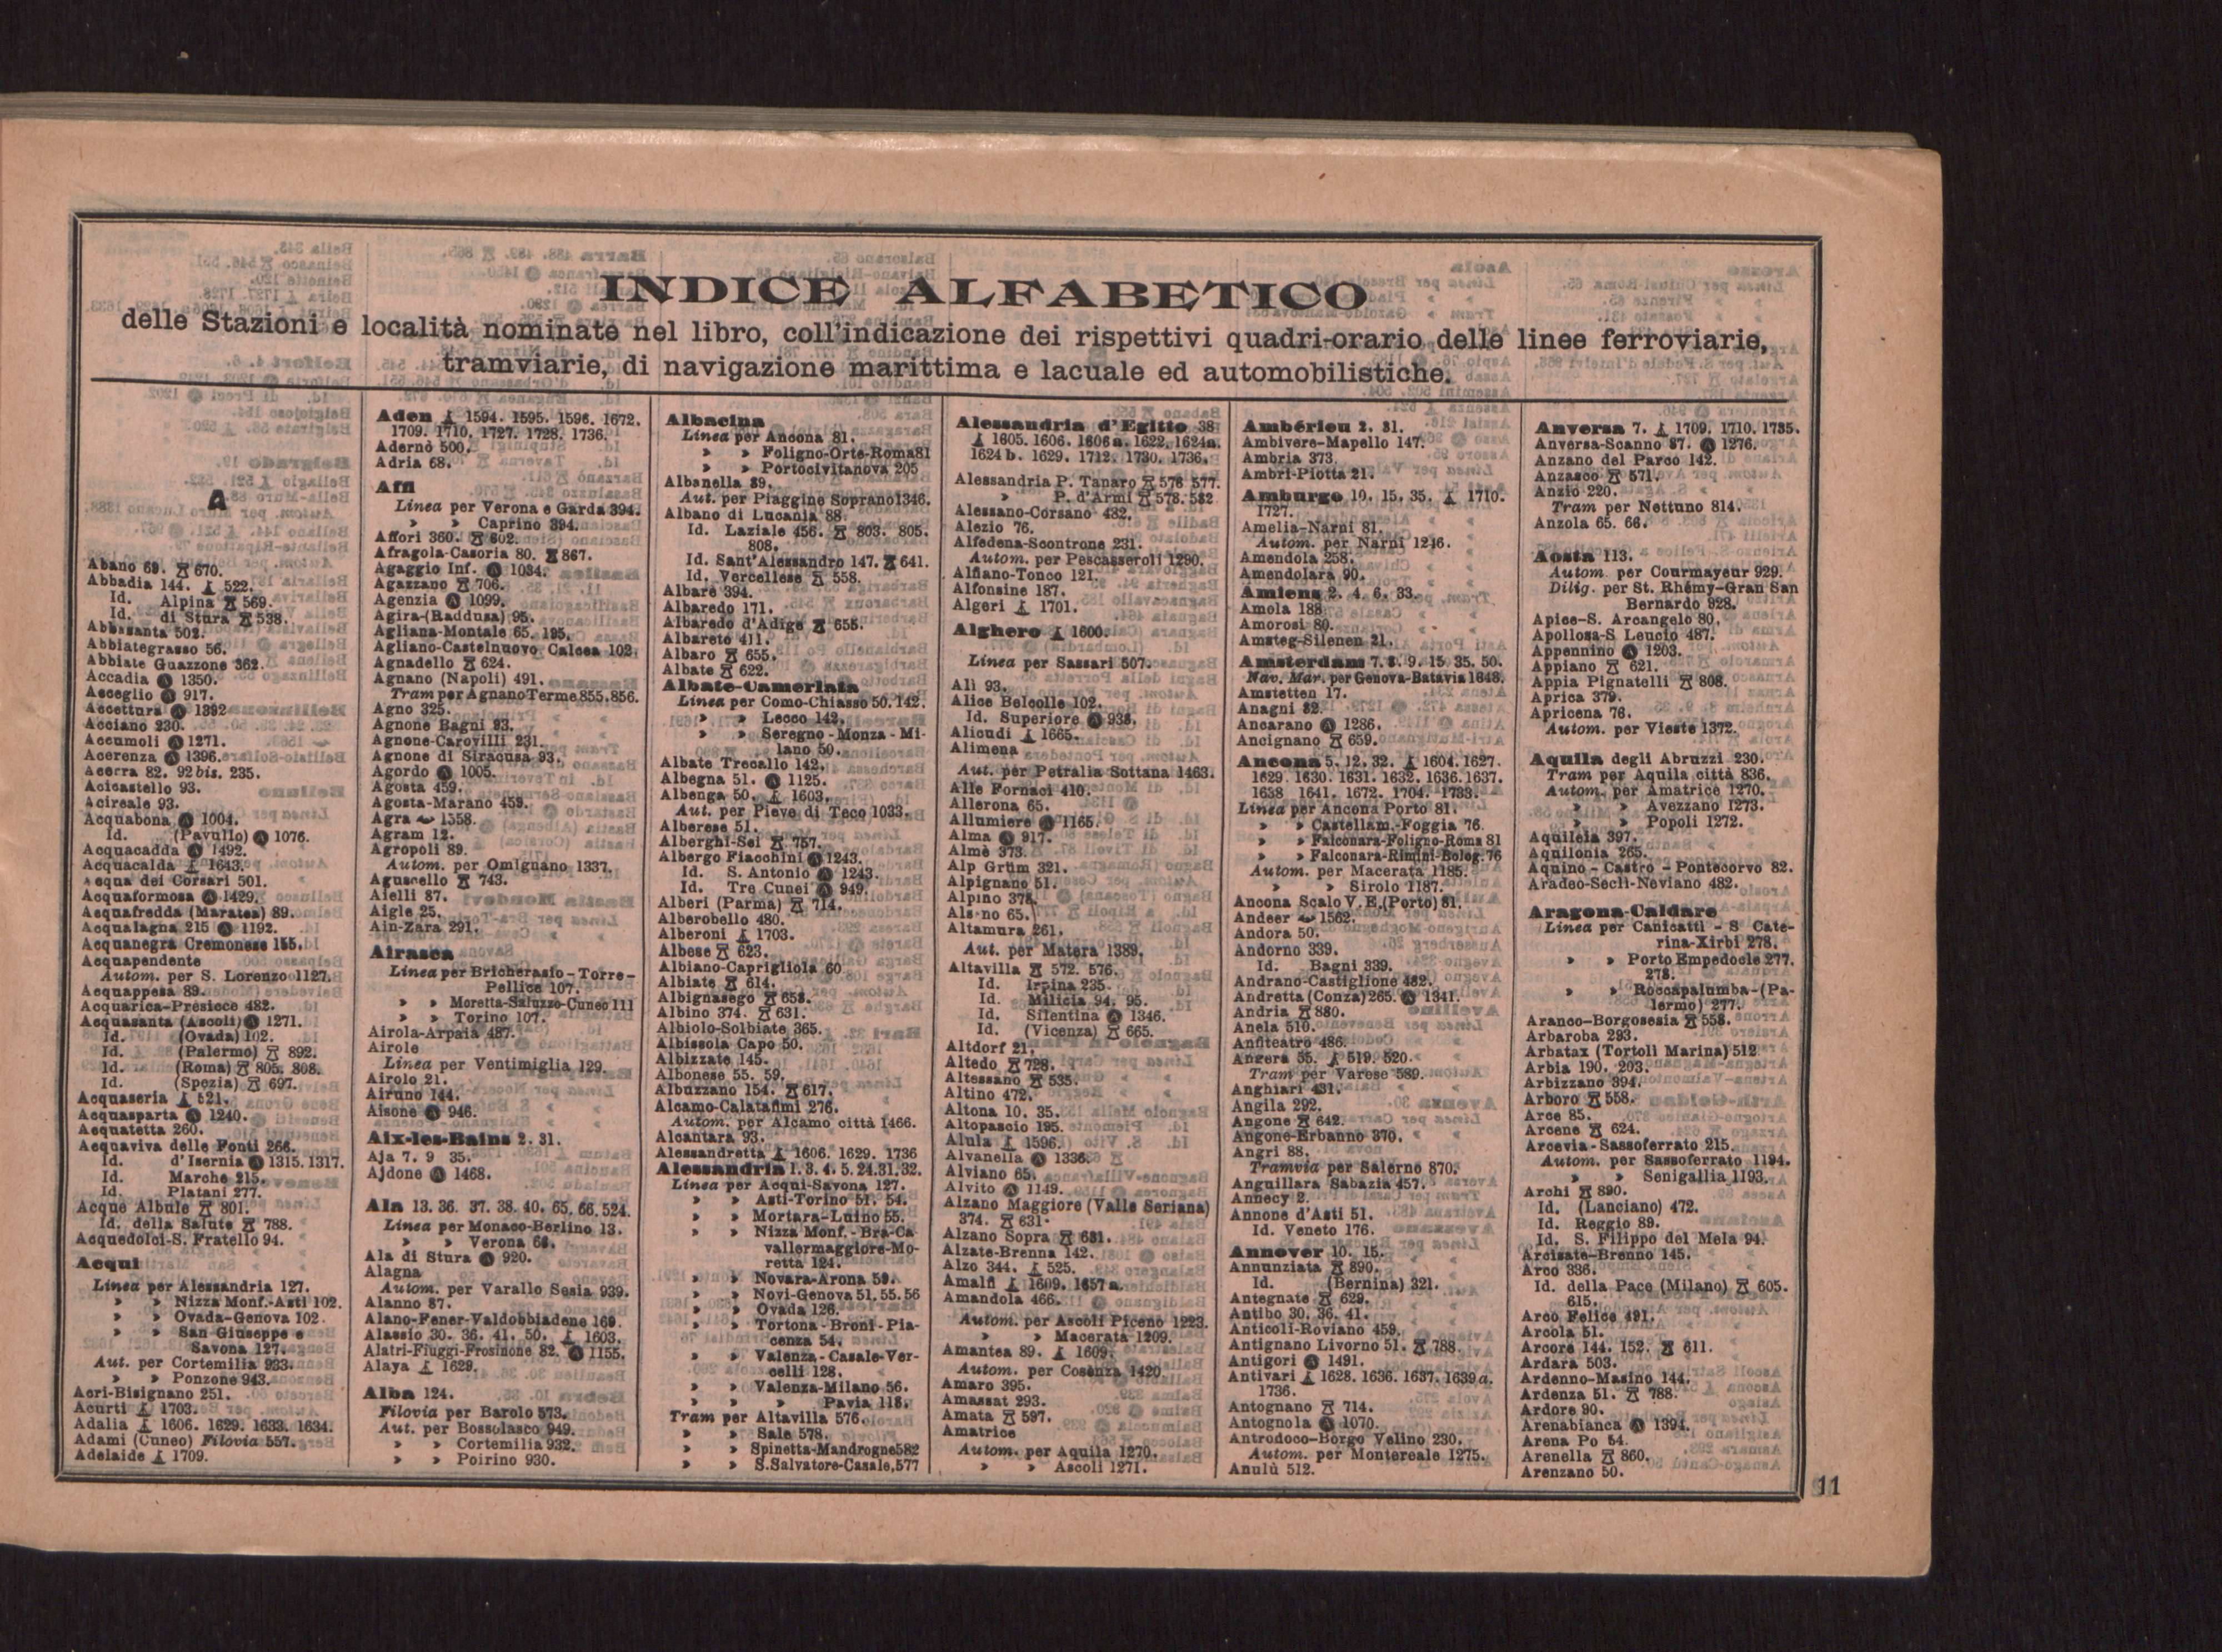 INDICE ALFABETICO
delle Stazioni e località nominate nel libro, coll'indicazione dei rispettivi quadri-orario delle linee ferroviarie,
tramviarie, di navigazione marittima e lacuale ed automobilistiche.
A
Abano 69. 670.
Abbadia 144. 522.
Id. Alpina 569.
Id. di Stura 538.
Abbasanta 502.
Abbiategrasso 56.
Abbiate Guazzone 362.
Accadia 1350.
Acceglio 917.
Accettura 1392
Acciano 230.
Accumoli 1271.
Acerenza 1396.
Acerra 82. 92 bis. 235.
Acicastello 93.
Acireale 93.
Acquabona 1004.
Id. (Pavullo) 1076.
Acquacadda 1492.
Acquacalda 1643.
Acqua dei Corsari 501.
Acquaformosa 1429.
Acquafredda (Maratea) 89.
Acqualagna 215 1192.
Acquanegra Cremonese 155.
Acquapendente
Autom. per S. Lorenzo 1127.
Acquappesa 89.
Acquarica-Presicce 482.
Acquasanta (Ascoli) 1271.
Id. (Ovada) 102.
Id. (Palermo) 892.
Id. (Roma) 805. 808.
Id. (Spezia) 697.
Acquaseria 521.
Acquasparta 1240.
Acquatetta 260.
Acquaviva delle Fonti 266.
Id. d'Isernia 1315. 1317.
Id. Marche 215.
Id. Platani 277.
Acque Albule 801.
Id. della Salute 788.
Acquedolci-S. Fratello 94.
Acqui
Linea per Alessandria 127.
» » Nizza Monf.-Asti 102.
» » Ovada-Genova 102.
» » San Giuseppe e
Savona 127.
Aut. per Cortemilia 933.
» » Ponzone 943.
Acri-Bisignano 251.
Acurti 1703.
Adalia 1606. 1629. 1633. 1634.
Adami (Cuneo) Filovia 557.
Adelaide 1709.
Aden 1594. 1595. 1596. 1672.
1709. 1710. 1727. 1728. 1736.
Adernò 500.
Adria 68.
Affi
Linea per Verona e Garda 394.
» » Caprino 394.
Affori 360. 602.
Afragola-Casoria 80. 867.
Agaggio Inf. 1034.
Agazzano 706.
Agenzia 1099.
Agira-(Raddusa) 95.
Agliana-Montale 65. 195.
Agliano-Castelnuovo Calcea 102.
Agnadello 624.
Agnano (Napoli) 491.
Tram per Agnano Terme 855. 856.
Agno 325.
Agnone Bagni 93.
Agnone-Carovilli 231.
Agnone di Siracusa 93.
Agordo 1005.
Agosta 459.
Agosta-Marano 459.
Agra 1558.
Agram 12.
Agropoli 89.
Autom. per Omignano 1337.
Aguscello 743.
Aielli 87.
Aigle 25.
Ain-Zara 291.
Airasca
Linea per Bricherasio-Torre-
Pellice 107.
» » Moretta-Saluzzo-Cuneo 111
» » Torino 107.
Airola-Arpaia 487.
Airole
Linea per Ventimiglia 129.
Airolo 21.
Airuno 144.
Aisone 946.
Aix-les-Bains 2. 31.
Aja 7. 9 35.
Ajdone 1468.
Ala 13. 36. 37. 38. 40. 65. 66. 524.
Linea per Monaco-Berlino 13.
» » Verona 66.
Ala di Stura 920.
Alagna
Autom. per Varallo Sesia 939.
Alanno 87.
Alano-Fener-Valdobbiadene 169.
Alassio 30. 36. 41. 50. 1603.
Alatri-Fiuggi-Frosinone 82. 1155.
Alaya 1629.
Alba 124.
Filovia per Barolo 573.
Aut. per Bossolasco 949.
» » Cortemilia 932.
» » Poirino 930.
Albacina
Linea per Ancona 81.
» » Foligno-Orte-Roma 81
» » Portocivitanova 205
Albanella 89.
Aut. per Piaggine Soprano 1346.
Albano di Lucania 88.
Id. Laziale 456. 803. 805.
808.
Id. Sant'Alessandro 147. 641.
Id. Vercellese 558.
Albare 394.
Albaredo 171.
Albaredo d'Adige 655.
Albareto 411.
Albaro 655.
Albate 622.
Albate-Camerlata
Linea per Como-Chiasso 50. 142.
» » Lecco 142.
» » Seregno-Monza-Mi-
lano 50.
Albate Trecallo 142.
Albegna 51. 1125.
Albenga 50. 1603.
Aut. per Pieve di Teco 1033.
Alberese 51.
Alberghi-Sei 757.
Albergo Fiacchini 1243.
Id. S. Antonio 1243.
Id. Tre Cunei 949.
Alberi (Parma) 714.
Alberobello 480.
Alberoni 1703.
Albese 623.
Albiano-Caprigliola 60
Albiate 614.
Albignasego 658.
Albino 374. 631.
Albiolo-Solbiate 365.
Albissola Capo 50.
Albizzate 145.
Albonese 55. 59.
Albuzzano 154. 617.
Alcamo-Calatafimi 276.
Autom. per Alcamo città 1466.
Alcantara 93.
Alessandretta 1606. 1629. 1736
Alessandria 1. 3. 4. 5. 24. 31. 32.
Linea per Acqui-Savona 127.
» » Asti-Torino 51. 54.
» » Mortara-Luino 55.
» » Nizza Monf.-Bra-Ca-
vallermaggiore-Mo-
retta 124.
» » Novara-Arona 59.
» » Novi-Genova 51. 55. 56
» » Ovada 126.
» » Tortona-Broni-Pia-
cenza 54.
» » Valenza-Casale-Ver-
celli 128.
» » Valenza-Milano 56.
» » » Pavia 118.
Tram per Altavilla 576.
» » Sale 578.
» » Spinetta-Mandrogne 582
» » S. Salvatore-Casale, 577
Alessandria d'Egitto 38
1605. 1606. 1606 a. 1622. 1624a.
1624 b. 1629. 1712. 1730. 1736.
Alessandria P. Tanaro 576 577.
» P. d'Armi 578. 582
Alessano-Corsano 482.
Alezio 76.
Alfedena-Scontrone 231.
Autom. per Pescasseroli 1290.
Alfiano-Tonco 121.
Alfonsine 187.
Algeri 1701.
Alghero 1600.
Linea per Sassari 507.
Alì 93.
Alice Belcolle 102.
Id. Superiore 938.
Alicudi 1665.
Alimena
Aut. per Petralia Sottana 1463.
Alle Fornaci 410.
Allerona 65.
Allumiere 1165.
Alma 917.
Almè 373.
Alp Grüm 321.
Alpignano 51.
Alpino 378.
Alsno 65.
Altamura 261.
Aut. per Matera 1389.
Altavilla 572. 576.
Id. Irpina 235.
Id. Milicia 94. 95.
Id. Silentina 1346.
Id. (Vicenza) 665.
Altdorf 21.
Altedo 728.
Altessano 535.
Altino 472.
Altona 10. 35.
Altopascio 195.
Alula 1596.
Alvanella 1336.
Alviano 65.
Alvito 1149.
Alzano Maggiore (Valle Seriana)
374. 631.
Alzano Sopra 631.
Alzate-Brenna 142.
Alzo 344. 525.
Amalfi 1609. 1657 a.
Amandola 466.
Autom. per Ascoli Piceno 1223.
» » Macerata 1209.
Amantea 89. 1609.
Autom. per Cosenza 1420
Amaro 395.
Amassat 293.
Amata 597.
Amatrice
Autom. per Aquila 1270.
» » Ascoli 1271.
Ambérieu 2. 31.
Ambivere-Mapello 147.
Ambria 373.
Ambri-Piotta 21.
Amburgo 10. 15. 35. 1710.
1727.
Amelia-Narni 81.
Autom. per Narni 1246.
Amendola 258.
Amendolara 90.
Amiens 2. 4. 6. 33.
Amola 188.
Amorosi 80.
Amsteg-Silenen 21.
Amsterdam 7. 8. 9. 15. 35. 50.
Nav. Mar. per Genova-Batavia 1648.
Amstetten 17.
Anagni 82.
Ancarano 1286.
Ancignano 659.
Ancona 5. 12. 32. 1604. 1627.
1629. 1630. 1631. 1632. 1636. 1637.
1638 1641. 1672. 1704. 1733.
Linea per Ancona Porto 81.
» » Castellam.-Foggia 76.
» » Falconara-Foligno-Roma 81
» » Falconara-Rimini-Bolog. 76
Autom. per Macerata 1185.
» » Sirolo 1187.
Ancona Scalo V. E. (Porto) 81.
Andeer 1562.
Andora 50.
Andorno 339.
Id. Bagni 339.
Andrano-Castiglione 482.
Andretta (Conza) 265. 1341.
Andria 880.
Anela 510.
Anfiteatro 486.
Angera 55. 519. 520.
Tram per Varese 589.
Anghiari 431.
Angila 292.
Angone 642.
Angone-Erbanno 370.
Angri 88.
Tramvia per Salerno 870.
Anguillara Sabazia 457.
Annecy 2.
Annone d'Asti 51.
Id. Veneto 176.
Annover 10. 15.
Annunziata 890.
Id. (Bernina) 321.
Antegnate 629.
Antibo 30. 36. 41.
Anticoli-Roviano 459.
Antignano Livorno 51. 788.
Antigori 1491.
Antivari 1628. 1636. 1637. 1639 a.
1736.
Antognano 714.
Antognola 1070.
Antrodoco-Borgo Velino 230.
Autom. per Montereale 1275.
Anulù 512.
Anversa 7. 1709. 1710. 1735.
Anversa-Scanno 87. 1276.
Anzano del Parco 142.
Anzasco 571.
Anzio 220.
Tram per Nettuno 814.
Anzola 65. 66.
Aosta 113.
Autom. per Courmayeur 929.
Dilig. per St. Rhémy-Gran San
Bernardo 928.
Apice-S. Arcangelo 80.
Apollosa-S Leucio 487.
Appennino 1203.
Appiano 621.
Appia Pignatelli 808.
Aprica 379.
Apricena 76.
Autom. per Vieste 1372.
Aquila degli Abruzzi 230.
Tram per Aquila città 836.
Autom. per Amatrice 1270.
» » Avezzano 1273.
» » Popoli 1272.
Aquileia 397.
Aquilonia 265.
Aquino-Castro-Pontecorvo 82.
Aradeo-Seclì-Neviano 482.
Aragona-Caldare
Linea per Canicattì-S Cate-
rina-Xirbi 278.
» » Porto Empedocle 277.
278.
» » Roccapalumba-(Pa-
lermo) 277.
Aranco-Borgosesia 558.
Arbaroba 293.
Arbatax (Tortolì Marina) 512
Arbia 190. 203.
Arbizzano 394.
Arboro 558.
Arce 85.
Arcene 624.
Arcevia-Sassoferrato 215.
Autom. per Sassoferrato 1194.
» » Senigallia 1193.
Archi 890.
Id. (Lanciano) 472.
Id. Reggio 89.
Id. S. Filippo del Mela 94.
Arcisate-Brenno 145.
Arco 336.
Id. della Pace (Milano) 605.
615.
Arco Felice 491.
Arcola 51.
Arcore 144. 152. 611.
Ardara 503.
Ardenno-Masino 144.
Ardenza 51. 788.
Ardore 90.
Arenabianca 1394.
Arena Po 54.
Arenella 860.
Arenzano 50.
11